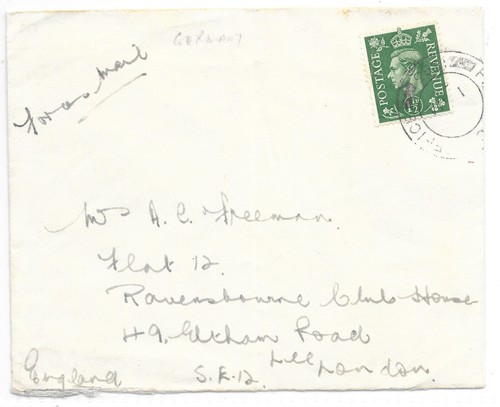 GERMANY
Forces Mail
POSTAGE REVENUE
Mrs A. C. Freeman.
Flat 12.
Ravensbourne Club House
49. Eltham Road
Lee London.
England S.E.12.